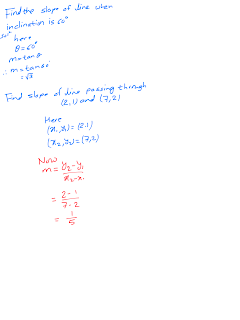 Find the slope of line when
inclination is 60°
Sol^n
here
θ = 60°
m = tanθ
∴ m = tan60°
= √3
Find slope of line passing through
(2,1) and (7,2)
Here
(x₁, y₁) = (2,1)
(x₂, y₂) = (7,2)
Now
m = y₂ - y₁ / x₂ - x₁
= 2 - 1 / 7 - 2
= 1 / 5